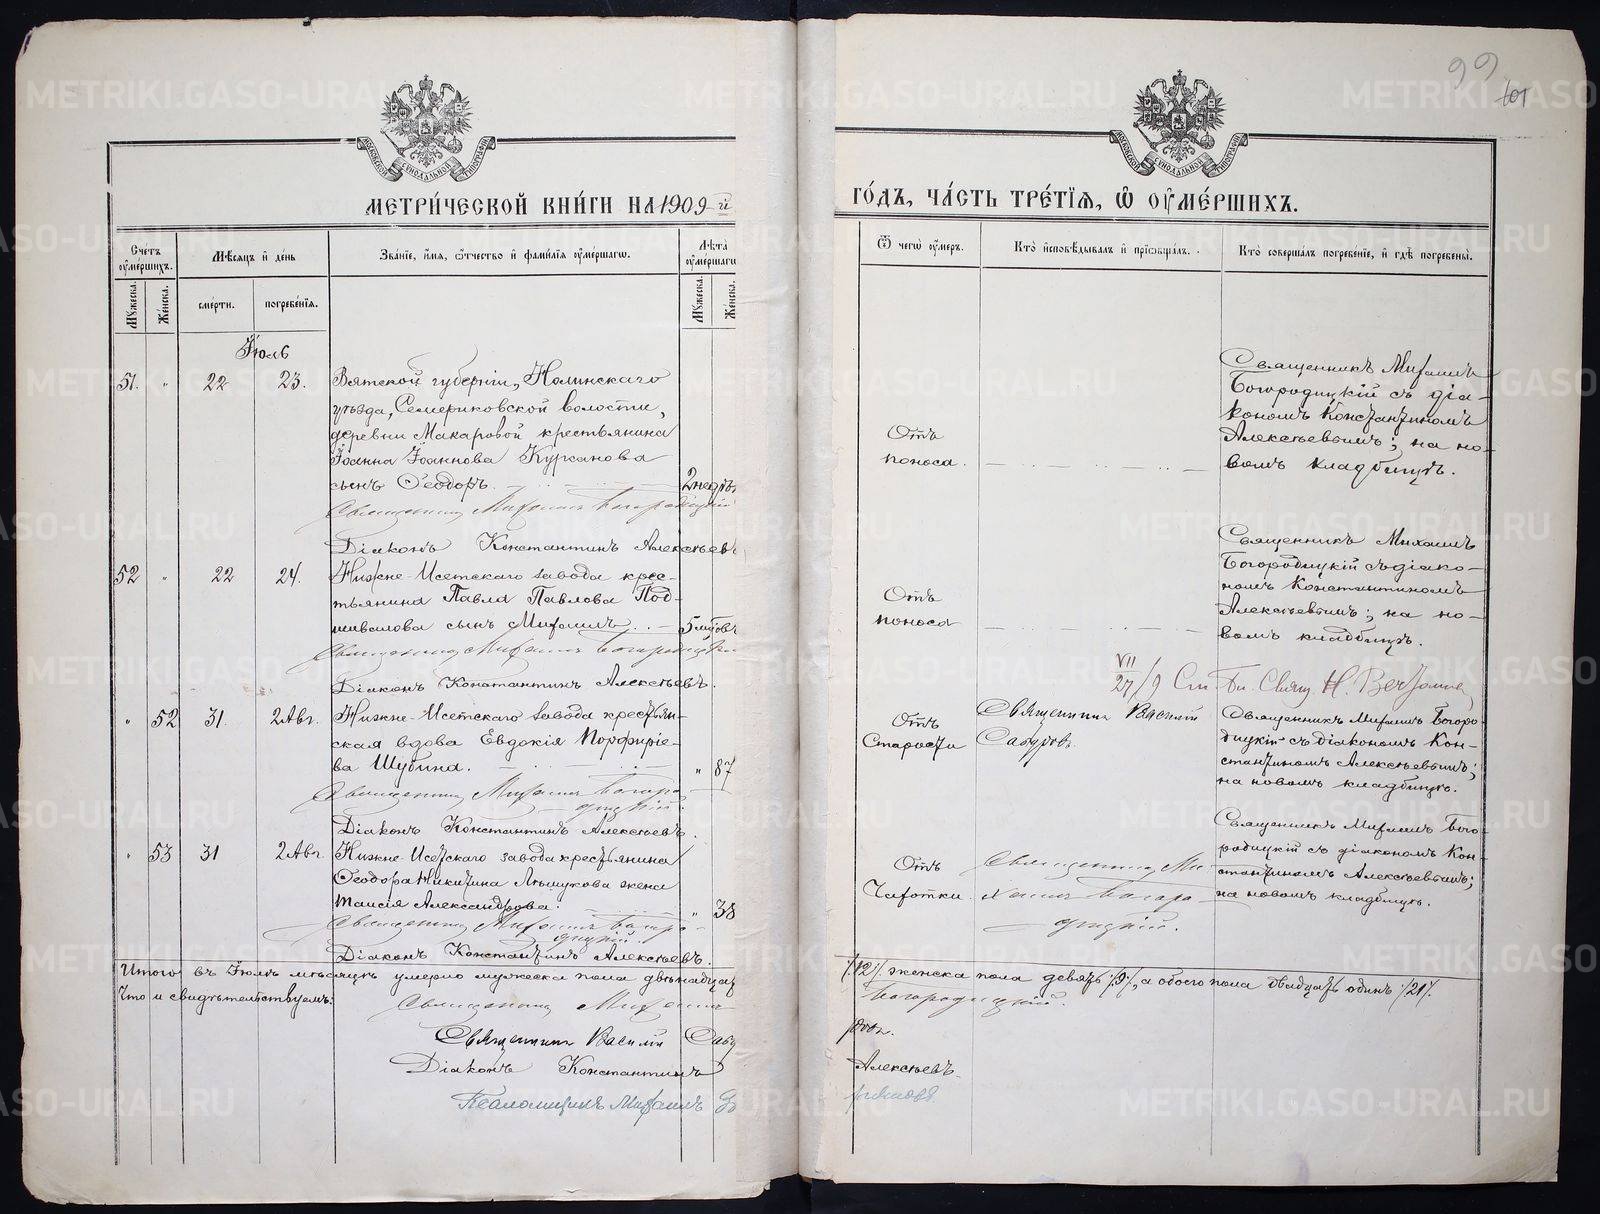 99
101
МОСКОВСКОЙ СѴНОДАЛЬНОЙ ТИПОГРАФІИ
МОСКОВСКОЙ СѴНОДАЛЬНОЙ ТИПОГРАФІИ
МЕТРИ́ЧЕСКОЙ КНИ́ГИ НА 1909 й
ГО́ДЪ, ЧА́СТЬ ТРЕ́ТІѦ, Ѡ ОУМЕ́РШИХЪ.
Сче́тъ оумершихъ.
Мѣсяцъ и день
Зва́ніе, имя, отчество и фамилія оумершагω.
Лѣта оумершагω
Ѿ чегѡ оумеръ.
Кто исповѣдывалъ и пріобщалъ.
Кто совершалъ погребеніе, и гдѣ погребены.
Мужеска.
Женска.
смерти.
погребенія.
Мужеска.
Женска.
Іюль
51. " 22 23. Вятской губерніи, Нолинскаго
уѣзда, Семериковской волости,
деревни Макаровой крестьянина
Іоанна Іоаннова Курсанова
сынъ Ѳеодоръ. 2 недѣль
Священникъ Михаилъ Богородицкій
Діаконъ Константинъ Алексѣевъ
Отъ
поноса.
Священникъ Михаилъ
Богородицкій съ діа-
кономъ Константиномъ
Алексѣевымъ; на но-
вомъ кладбищѣ.
52 " 22 24. Нижне-Исетскаго завода крес-
тьянина Павла Павлова Под-
шивалова сынъ Михаилъ. 5
Священникъ Михаилъ Богородицкій
Діаконъ Константинъ Алексѣевъ.
Отъ
поноса
Священникъ Михаилъ
Богородицкій съ діако-
номъ Константиномъ
Алексѣевымъ; на но-
вомъ кладбищѣ.
VII
27/9
" 52 31. 2 Авг. Нижне-Исетскаго завода крестьян-
ская вдова Евдокія Порфиріе-
ва Шубина. " 87
Священникъ Михаилъ Богоро-
дицкій.
Діаконъ Константинъ Алексѣевъ.
Отъ
Старости
Священникъ Василій
Сабуровъ
Священникъ Михаилъ Богоро-
дицкій съ діакономъ Кон-
стантиномъ Алексѣевымъ;
на новомъ кладбищѣ.
" 53 31 2 Авг Нижне-Исетскаго завода крестьянина
Ѳеодора Никитина жена
Таисія Александрова. " 38
Священникъ Михаилъ Богоро-
дицкій.
Діаконъ Константинъ Алексѣевъ.
Отъ
Чахотки.
Священникъ Ми-
хаилъ Богоро-
дицкій.
Священникъ Михаилъ Бого-
родицкій съ діакономъ Кон-
стантиномъ Алексѣевымъ;
на новомъ кладбищѣ.
Итого въ Іюлѣ мѣсяцѣ умерло мужеска пола двѣнадцать
/12/. женска пола девять /9/., а обоего пола двадцать одинъ /21/.
Что и свидѣтельствуемъ:
Священникъ Михаилъ
Богородицкій.
Священникъ Василій Сабу
ровъ.
Діаконъ Константинъ
Алексѣевъ.
Псаломщикъ Михаилъ
METRIKI.GASO-URAL.RU